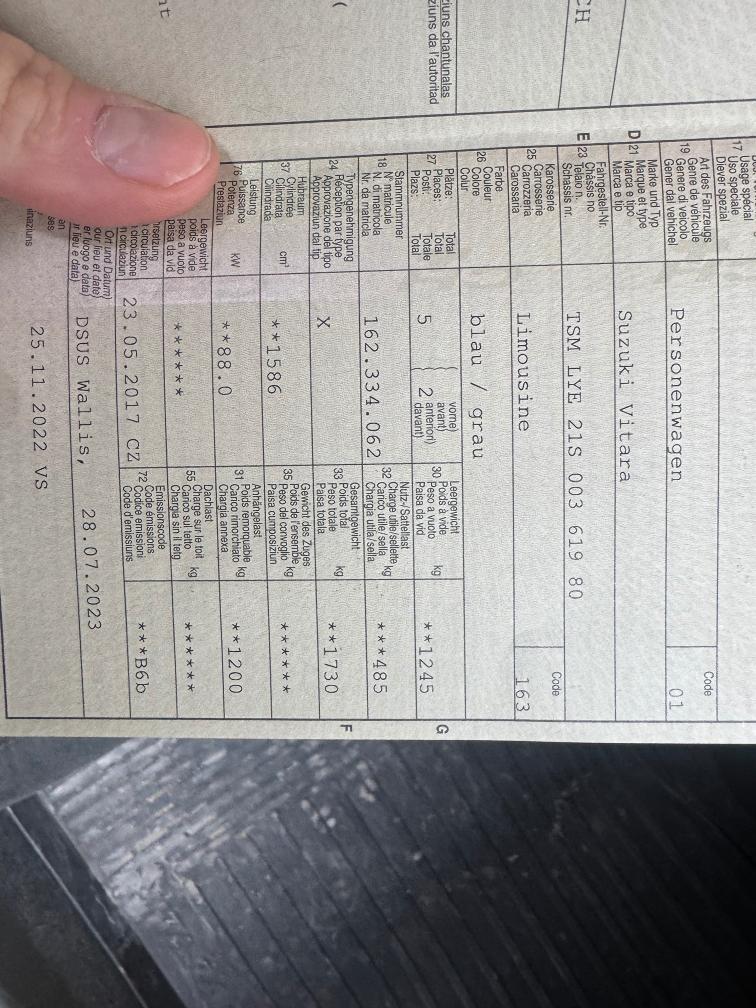 ziuns chantunalas
ziuns da l'autoritad
CH
17 Usage spécial
Uso speciale
Diever spezial
Art des Fahrzeugs
19 Genre de véhicule
Genere di veicolo
Gener dal vehichel
Personenwagen
Code
01
Marke und Typ
D 21 Marque et type
Marca e tipo
Marca e tip
Suzuki Vitara
Fahrgestell-Nr.
E 23 Châssis no
Telaio n.
Schassis nr.
TSM LYE 21S 003 619 80
Karosserie
25 Carrosserie
Carrozzeria
Carossaria
Limousine
Code
163
Farbe
26 Couleur
Colore
Colur
blau / grau
Plätze: Total
27 Places: Total
Posti: Totale
Plazs: Total
5
( vorne)
( avant)
2 anteriori)
davant)
Leergewicht
30 Poids à vide
Peso a vuoto kg
Paisa da vid
**1245
G
Stammnummer
18 N° matricule
N. di matricola
Nr. da matricla
162.334.062
Nutz-/Sattellast
32 Charge utile/sellette
Carico utile/sella kg
Chargia utila/sella
***485
Typengenehmigung
24 Réception par type
Approvazione del tipo
Approvaziun dal tip
X
Gesamtgewicht
33 Poids total
Peso totale kg
Paisa totala
**1730
F
Hubraum
37 Cylindrée
Cilindrata cm³
Cilindrada
**1586
Gewicht des Zuges
35 Poids de l'ensemble
Peso del convoglio kg
Paisa cumposiziun
******
Leistung
76 Puissance
Potenza kW
Prestaziun
**88.0
Anhängelast
31 Poids remorquable
Carico rimorchiato kg
Chargia annexa
**1200
Leergewicht
poids à vide
peso a vuoto
paisa da vid
******
Dachlast
55 Charge sur le toit
Carico sul tetto kg
Chargia sin il tetg
******
circulation
circolazione
circulaziun
23.05.2017 CZ
Emissionscode
72 Code émissions
Codice emissioni
Code d'emissiuns
***B6b
Ort und Datum)
lieu et date)
luogo e data)
lieu e data)
DSUS Wallis, 28.07.2023
25.11.2022 VS